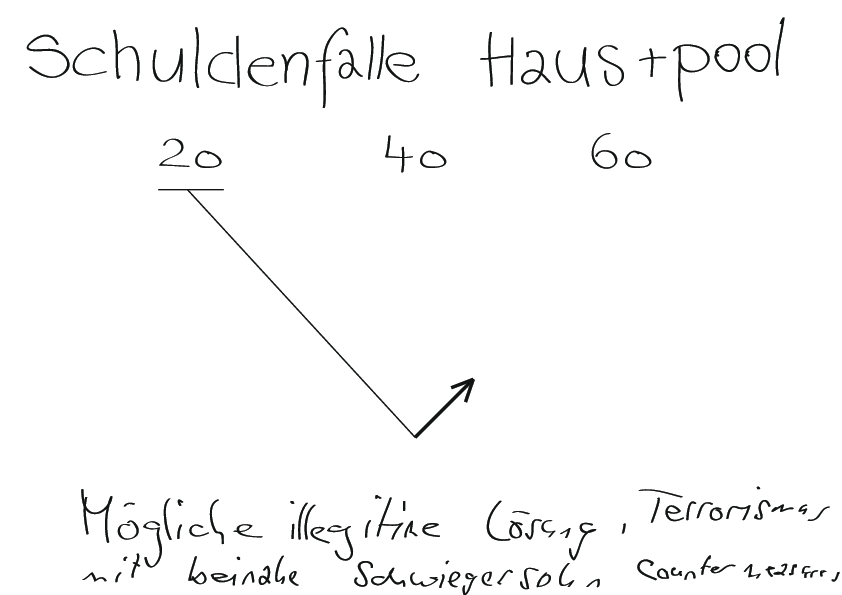 Schuldenfalle Haus+pool
20 40 60
Mögliche illegitime Lösung, Terrorismus
mit beinahe Schwiegersohn Counter measures